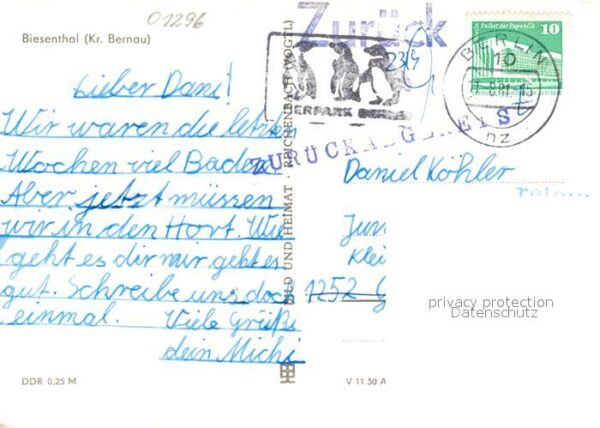 01296
Biesenthal (Kr. Bernau)
Lieber Dani!
Wir waren die letzten
Wochen viel Baden
Aber jetzt müssen
wir in den Hort. Wie
geht es dir mir geht es
gut. Schreibe uns doch
einmal. Viele Grüße
dein Michi
DDR 0,25 M
BILD UND HEIMAT · REICHENBACH (VOGTL)
V 11 50 A
Zurück
TIERPARK BERLIN
BERLIN
10
Palast der Republik
10
ZURÜCK
Daniel Köhler
Jun
Klei
1252 G
privacy protection
Datenschutz